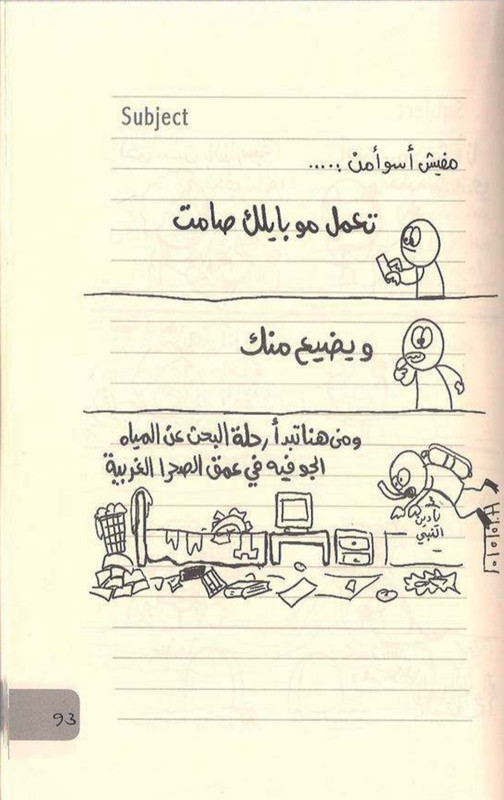 Subject
مفيش أسوأ من .....
تعمل موبايلك صامت
و يضيع منك
ومن هنا تبدأ رحلة البحث عن المياه
الجوفيه في عمق الصحرا الغربية
يا دين
النبي
93